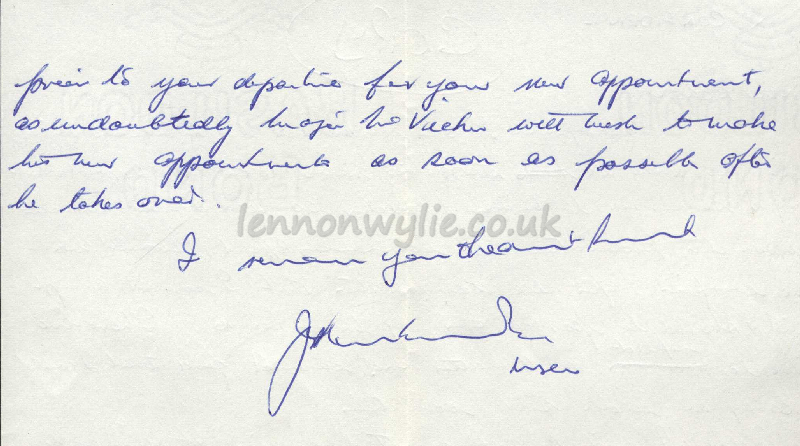 prior to your departure for your new appointment,
as undoubtedly Major McVicker will wish to make
his new appointments as soon as possible after
he takes over.
lennonwylie.co.uk
I remain your